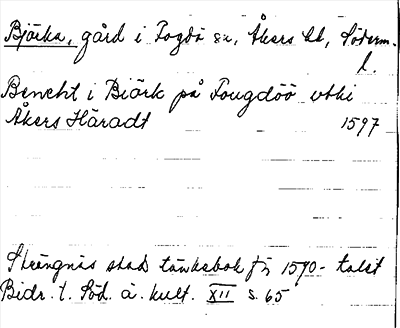 Björka, gård i Fogdö sn, Åkers hd, Söderm.
l.
Bencht i Biörk på Fougdöö vthi
Åkers Häradt 1597
Strängnäs stads tänkebok fr 1590-talet
Bidr. t. Söd. ä. kult. XII s. 65